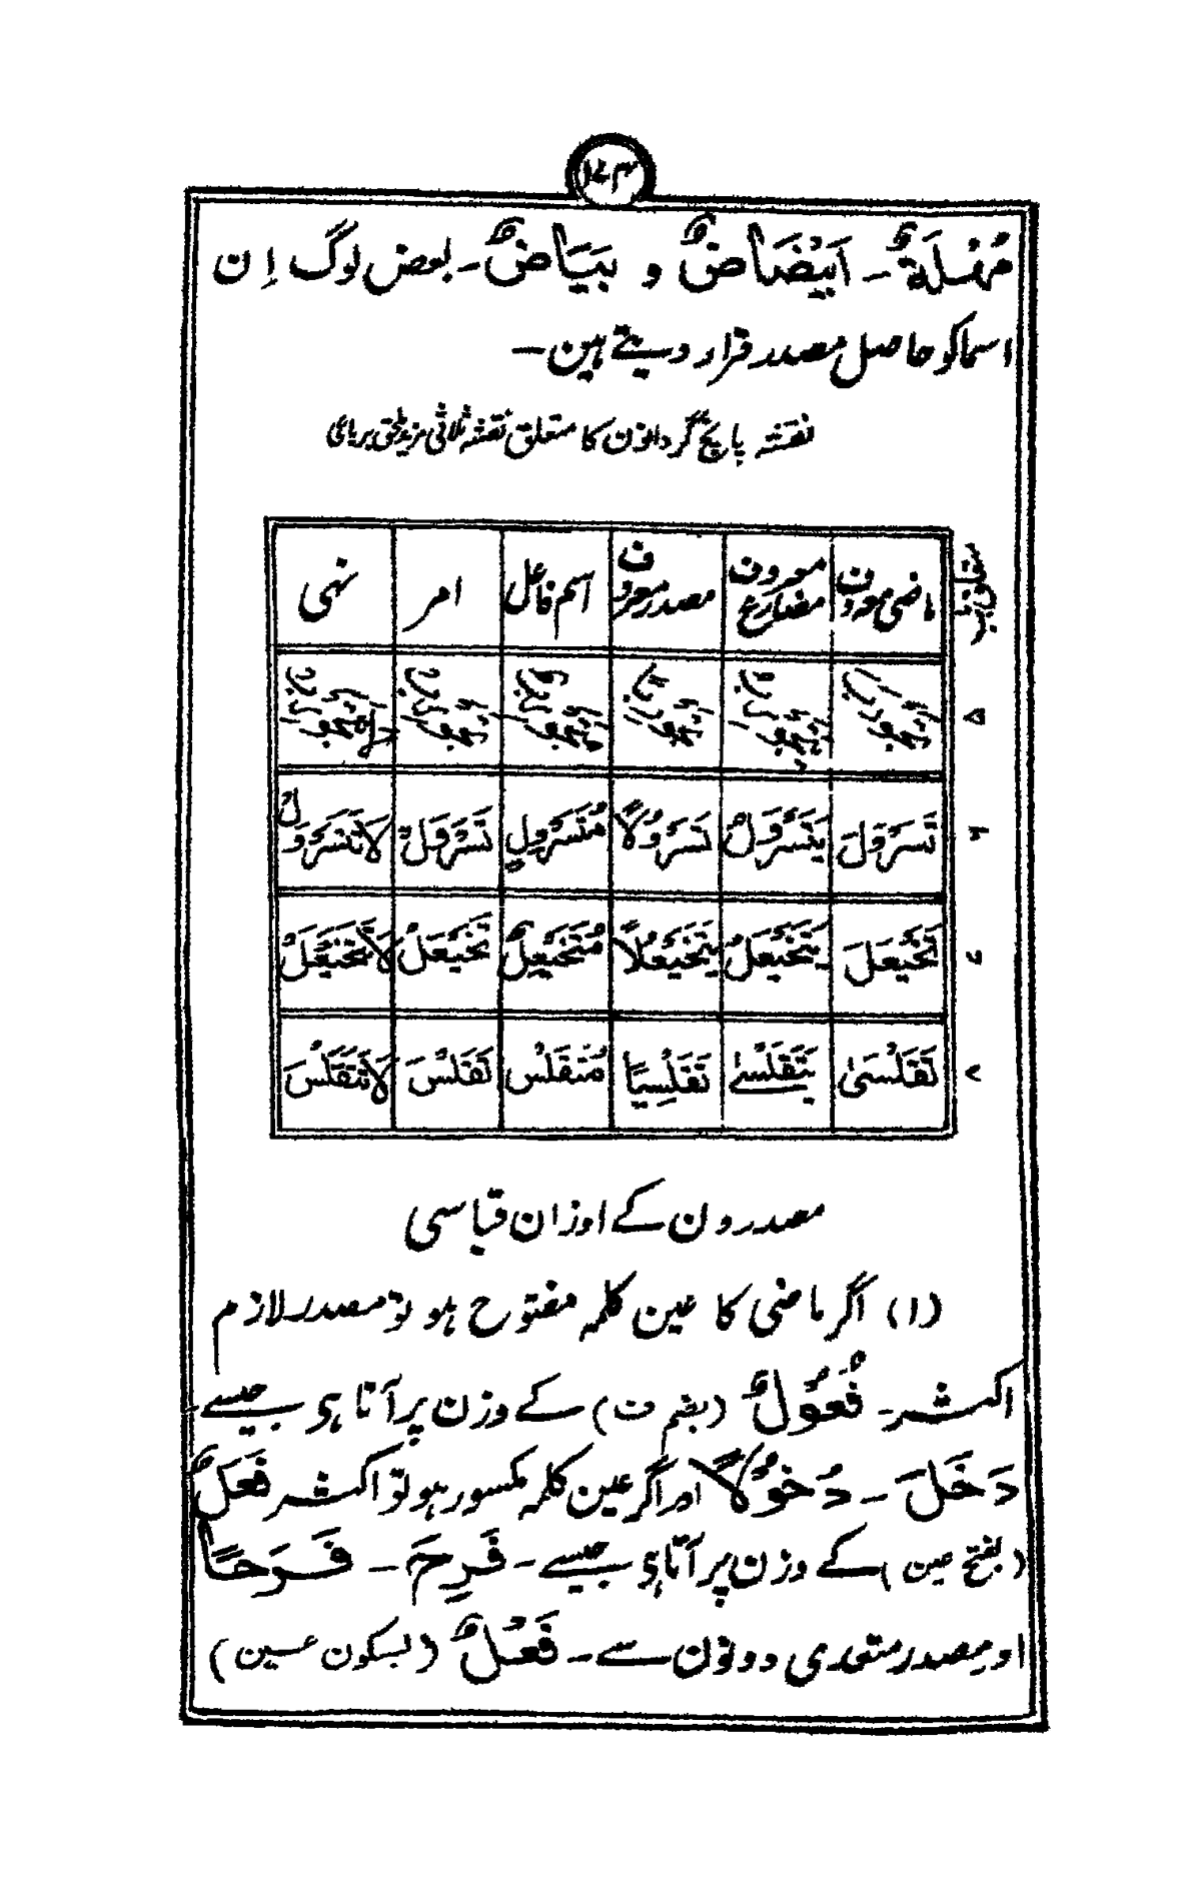 ۱۷۴
مُهْلَةٌ ـ اَبْيَضَاضٌ و بَيَاضٌ ـ بعض لوگ اِن
اسما کو حاصل مصدر قرار دیتے ہین ـ
نقشہ پانچ گردانون کا متعلق نقشہ ثلاثی مزید ملحق برباعی
ماضی معروف مضارع معروف مصدر معروف اسم فاعل امر نہی
۵ تَجَوْرَبَ يَتَجَوْرَبُ تَجَوْرُبًا مُتَجَوْرِبٌ تَجَوْرَبْ لَا تَتَجَوْرَبْ
۶ تَسَرْوَلَ يَتَسَرْوَلُ تَسَرْوُلًا مُتَسَرْوِلٌ تَسَرْوَلْ لَا تَتَسَرْوَلْ
۷ تَخَيْعَلَ يَتَخَيْعَلُ تَخَيْعُلًا مُتَخَيْعِلٌ تَخَيْعَلْ لَا تَتَخَيْعَلْ
۸ تَقَلْسٰی يَتَقَلْسٰے تَقَلْسِيًا مُتَقَلْسٍ تَقَلْسَ لَا تَتَقَلْسَ
مصدرون کے اوزان قیاسی
(۱) اگر ماضی کا عین کلمہ مفتوح ہو تو مصدر لازم
اکثر ـ فُعُوْلٌ (بضم ف) کے وزن پر آتا ہی جیسے
دَخَلَ ـ دُخُوْلًا اور اگر عین کلمہ مکسور ہو تو اکثر فَعَلٌ
(بفتح عین) کے وزن پر آتا ہی جیسے ـ فَرِحَ ـ فَرَحًا
اور مصدر متعدی دونون سے ـ فَعْلٌ (بسکون عین)